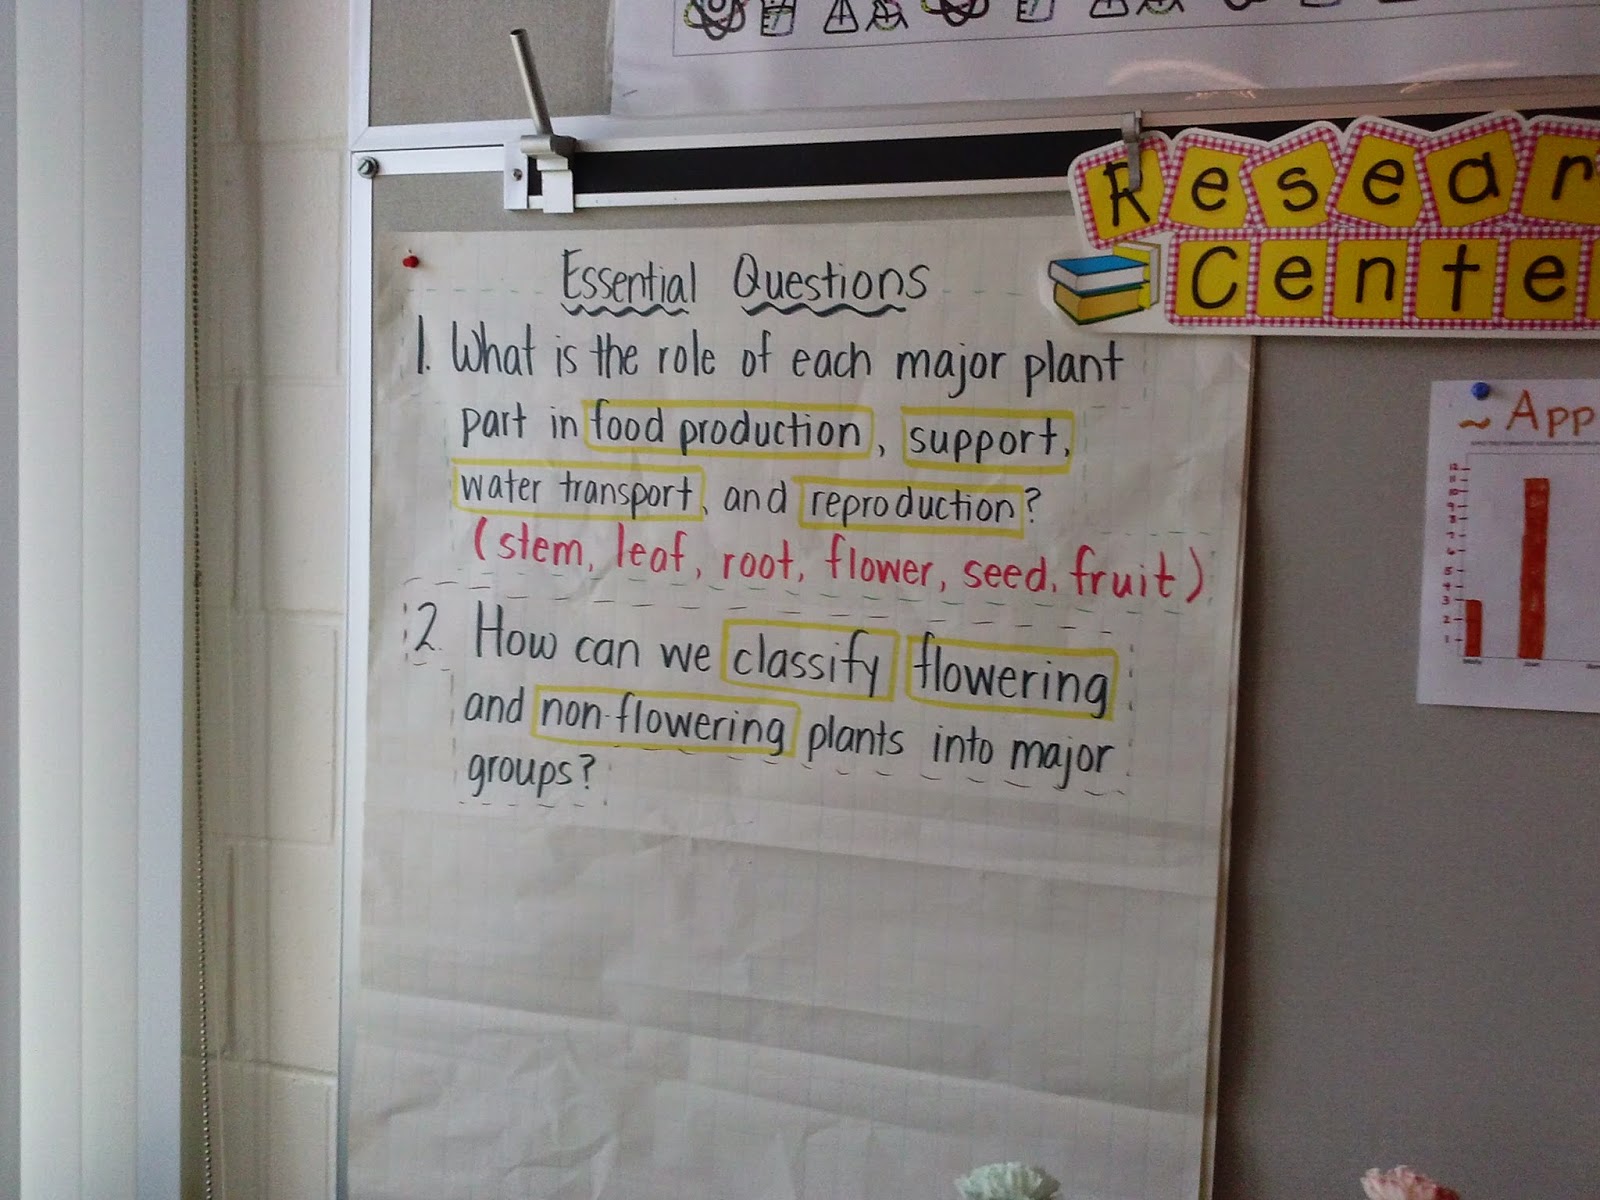 Resear
Cente
Essential Questions
1. What is the role of each major plant
part in food production, support,
water transport, and reproduction?
(stem, leaf, root, flower, seed, fruit)
2. How can we classify flowering
and non-flowering plants into major
groups?
~ App
12
11
10
9
8
7
6
5
4
3
2
1